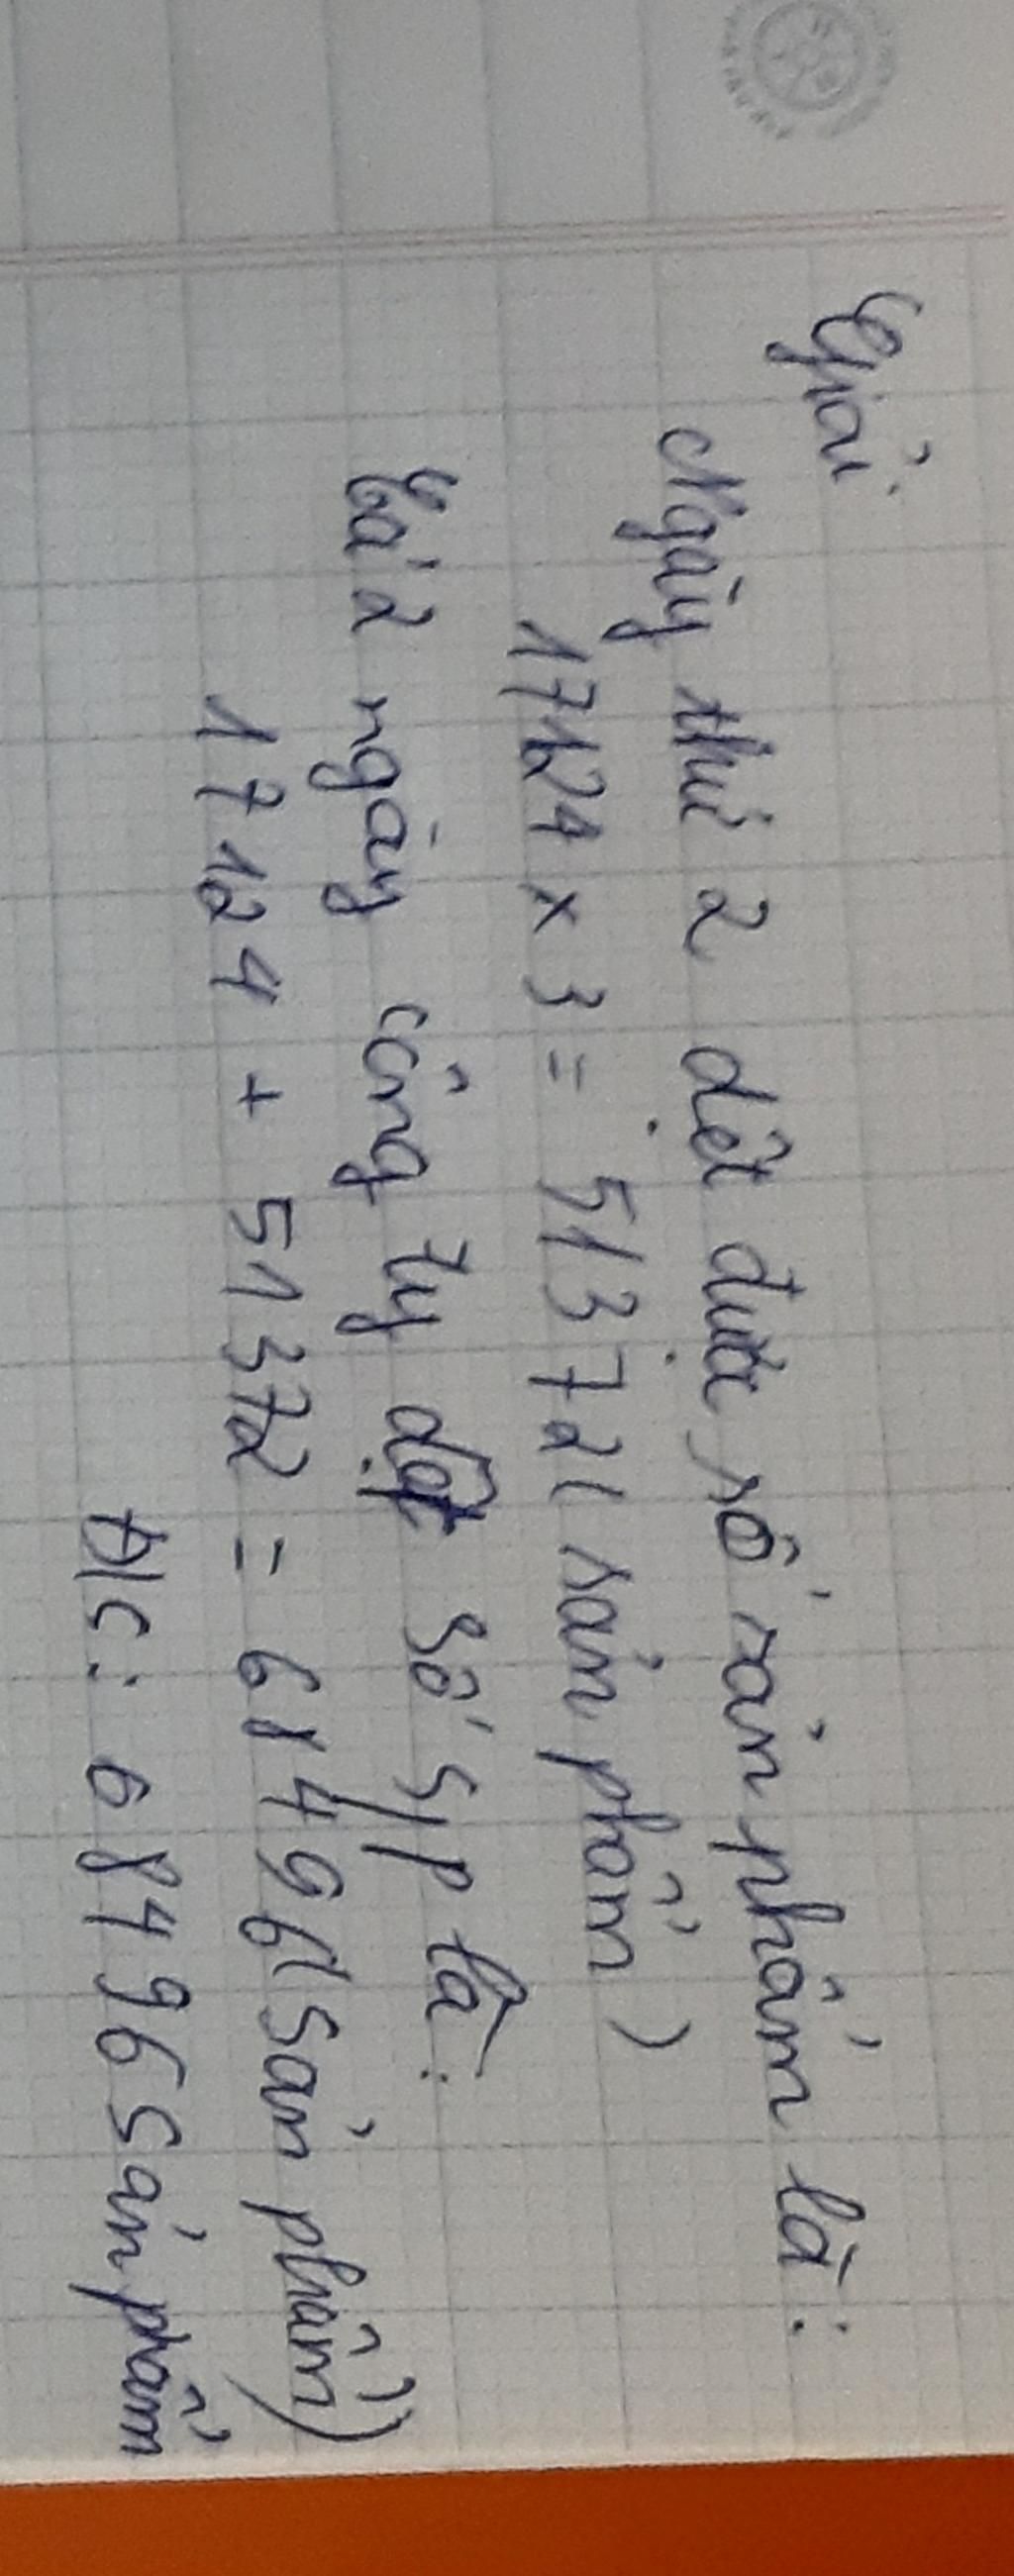 Giải
Ngày thứ 2 dệt được số sản phẩm là:
17124 x 3 = 51372 (sản phẩm)
Cả 2 ngày công ty dệt số S/P là:
17124 + 51372 = 68496 (sản phẩm)
Đ/C: 68496 sản phẩm